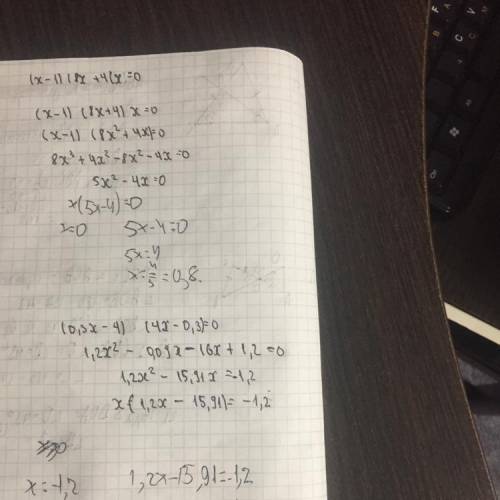 (x-1)(8x+4(x)=0
(x-1) (8x+4) x=0
(x-1) (8x²+4x)=0
8x³+4x²-8x²-4x=0
5x²-4x=0
x(5x-4)=0
x=0 5x-4=0
5x=4
x=4/5=0,8.
(0,3x-4) (4x-0,3)=0
1,2x²-0,09x-16x+1,2=0
1,2x²-15,91x=-1,2
x(1,2x-15,91)=-1,2
x=-1,2 1,2x-15,91=-1,2